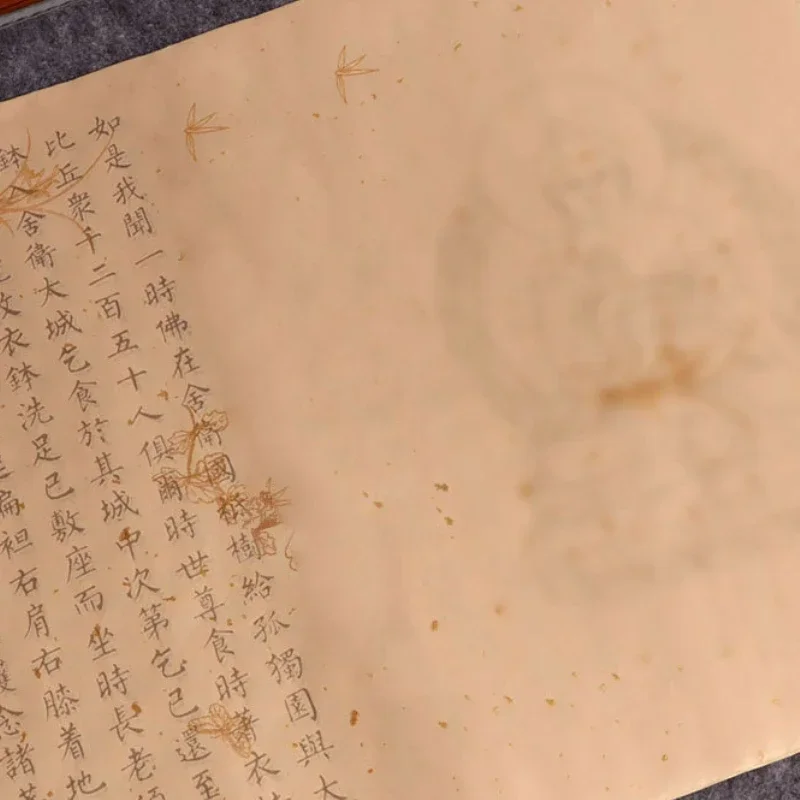 如是我聞一時佛在舍衛國祇樹給孤獨園與大
比丘衆千二百五十人俱爾時世尊食時著衣
鉢入舍衛大城乞食於其城中次第乞已還至
收衣鉢洗足已敷座而坐時長老
偏袒右肩右膝着地
念諸